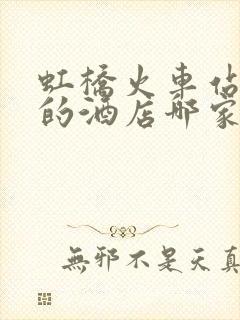 虹橋火車站
的酒店哪家
無邪不是天真